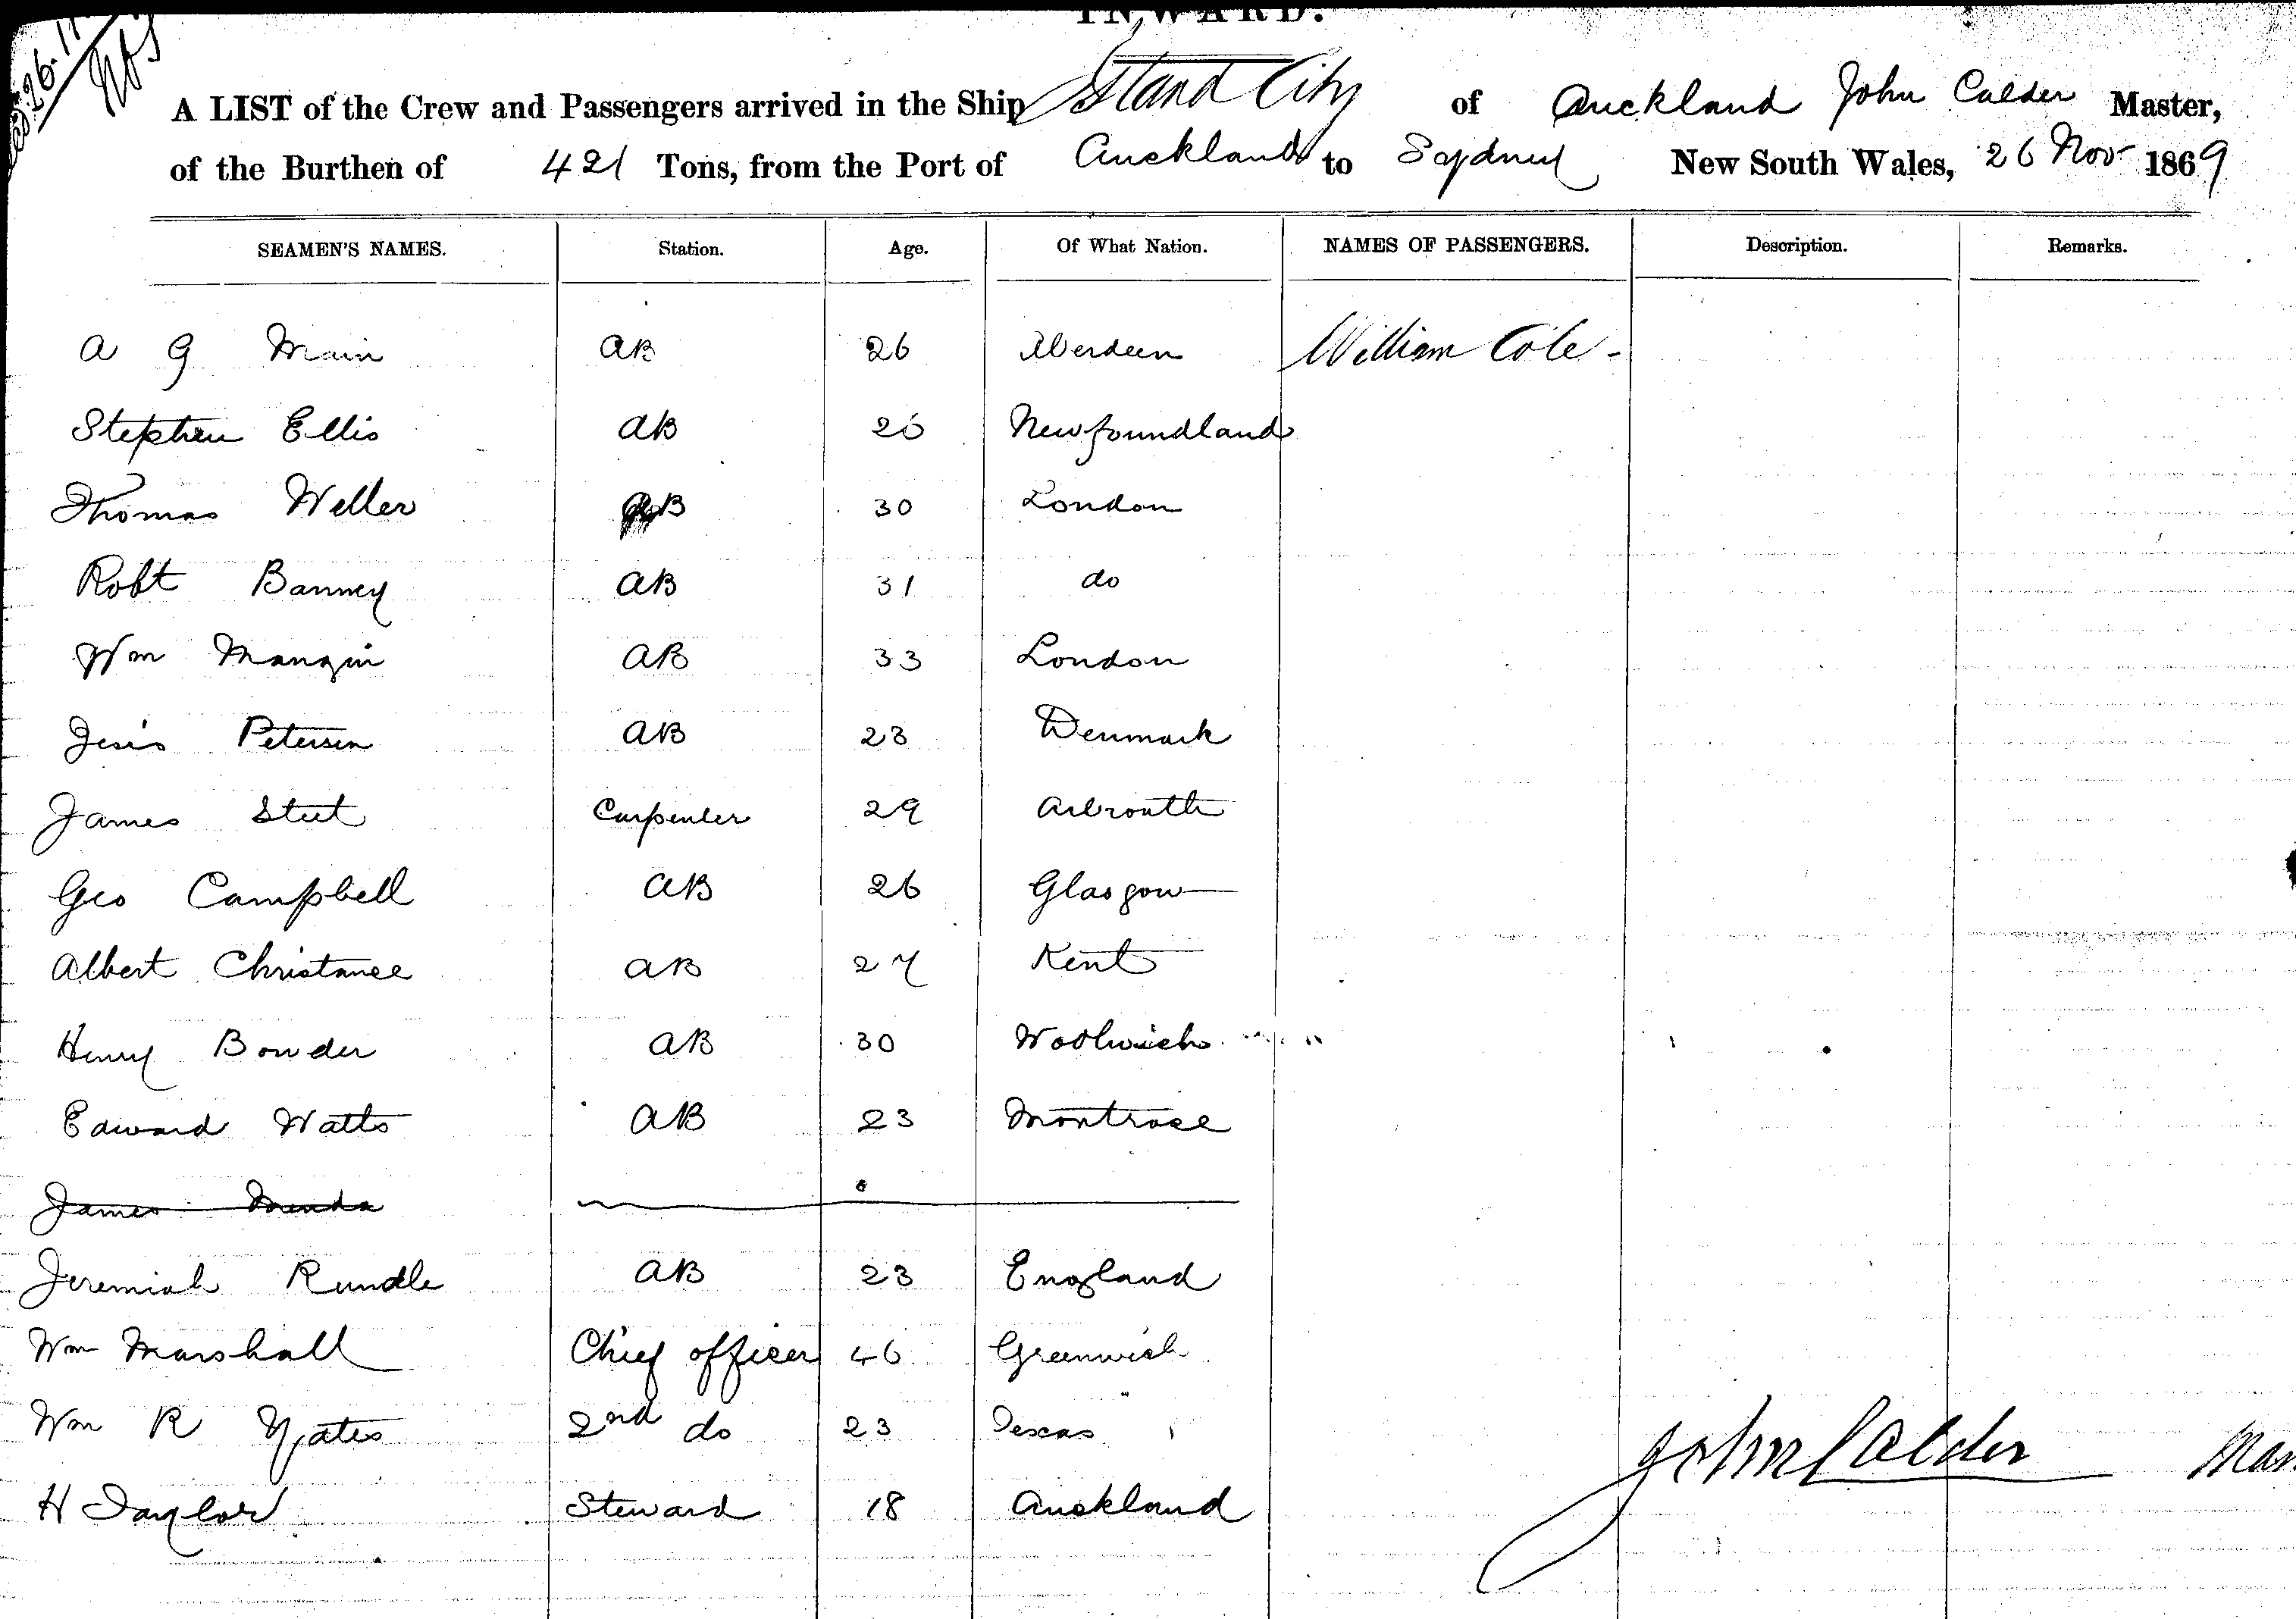 INWARD.
A LIST of the Crew and Passengers arrived in the Ship Island City of Auckland John Calder Master,
of the Burthen of 421 Tons, from the Port of Auckland to Sydney New South Wales, 26 Nov 1869
SEAMEN'S NAMES. Station. Age. Of What Nation. NAMES OF PASSENGERS. Description. Remarks.
A G Main AB 26 Aberdeen William Cole -
Stephen Ellis AB 20 Newfoundland
Thomas Weller AB 30 London
Robt Banney AB 31 do
Wm Mangin AB 33 London
Jesis Petersen AB 23 Denmark
James Steet Carpenter 29 Arbroath
Geo Campbell AB 26 Glasgow
Albert Christance AB 27 Kent
Henry Bowder AB 30 Woolwich
Edward Watts AB 23 Montrose
James
Jeremiah Rundle AB 23 England
Wm Marshall Chief officer 46 Greenwich
Wm R Yates 2nd do 23 Texas
H Taylor Steward 18 Auckland
John Calder